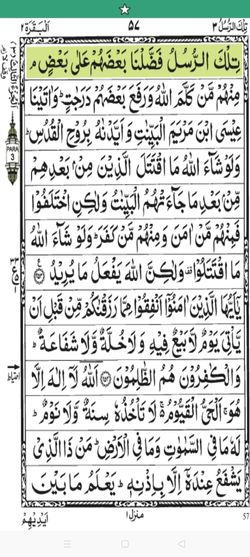 تِلْكَ الرُّسُلُ ٣ ٥٧ اَلْبَقَرَة ٢
تِلْكَ الرُّسُلُ فَضَّلْنَا بَعْضَهُمْ عَلٰى بَعْضٍ ۘ
مِنْهُمْ مَّنْ كَلَّمَ اللّٰهُ وَرَفَعَ بَعْضَهُمْ دَرَجٰتٍ ؕ وَاٰتَيْنَا
عِيْسَى ابْنَ مَرْيَمَ الْبَيِّنٰتِ وَاَيَّدْنٰهُ بِرُوْحِ الْقُدُسِ ؕ
وَلَوْ شَآءَ اللّٰهُ مَا اقْتَتَلَ الَّذِيْنَ مِنْۢ بَعْدِهِمْ
مِّنْۢ بَعْدِ مَا جَآءَتْهُمُ الْبَيِّنٰتُ وَلٰكِنِ اخْتَلَفُوْا
فَمِنْهُمْ مَّنْ اٰمَنَ وَمِنْهُمْ مَّنْ كَفَرَ ؕ وَلَوْ شَآءَ اللّٰهُ
مَا اقْتَتَلُوْا ۟ وَلٰكِنَّ اللّٰهَ يَفْعَلُ مَا يُرِيْدُ ﴿٢٥٣﴾
يٰٓاَيُّهَا الَّذِيْنَ اٰمَنُوْۤا اَنْفِقُوْا مِمَّا رَزَقْنٰكُمْ مِّنْ قَبْلِ اَنْ
يَّاْتِيَ يَوْمٌ لَّا بَيْعٌ فِيْهِ وَلَا خُلَّةٌ وَّلَا شَفَاعَةٌ ؕ
وَالْكٰفِرُوْنَ هُمُ الظّٰلِمُوْنَ ﴿٢٥٤﴾ اَللّٰهُ لَاۤ اِلٰهَ اِلَّا
هُوَ ۚ اَلْحَيُّ الْقَيُّوْمُ ۚ لَا تَاْخُذُهٗ سِنَةٌ وَّلَا نَوْمٌ ؕ
لَهٗ مَا فِي السَّمٰوٰتِ وَمَا فِي الْاَرْضِ ؕ مَنْ ذَا الَّذِيْ
يَشْفَعُ عِنْدَهٗۤ اِلَّا بِاِذْنِهٖ ؕ يَعْلَمُ مَا بَيْنَ
اَيْدِيْهِمْ
منزل ١
57
PARA
3